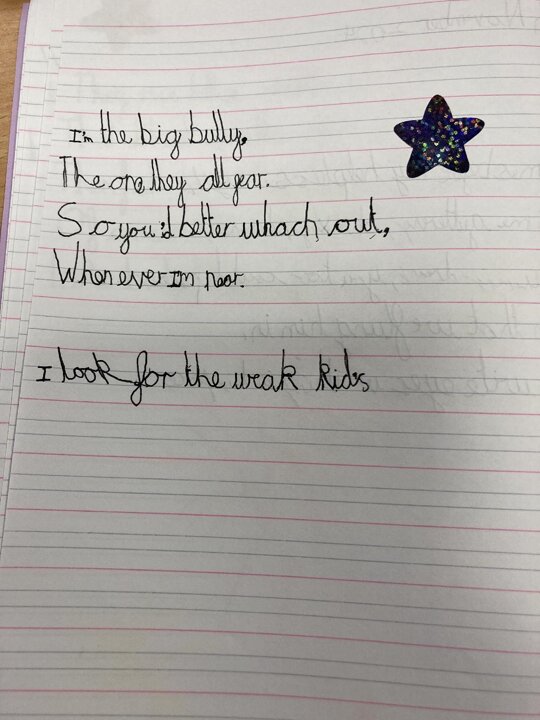 I'm the big bully,
The one they all fear.
So you'd better whach out,
Whenever I'm near.
I look for the weak kids